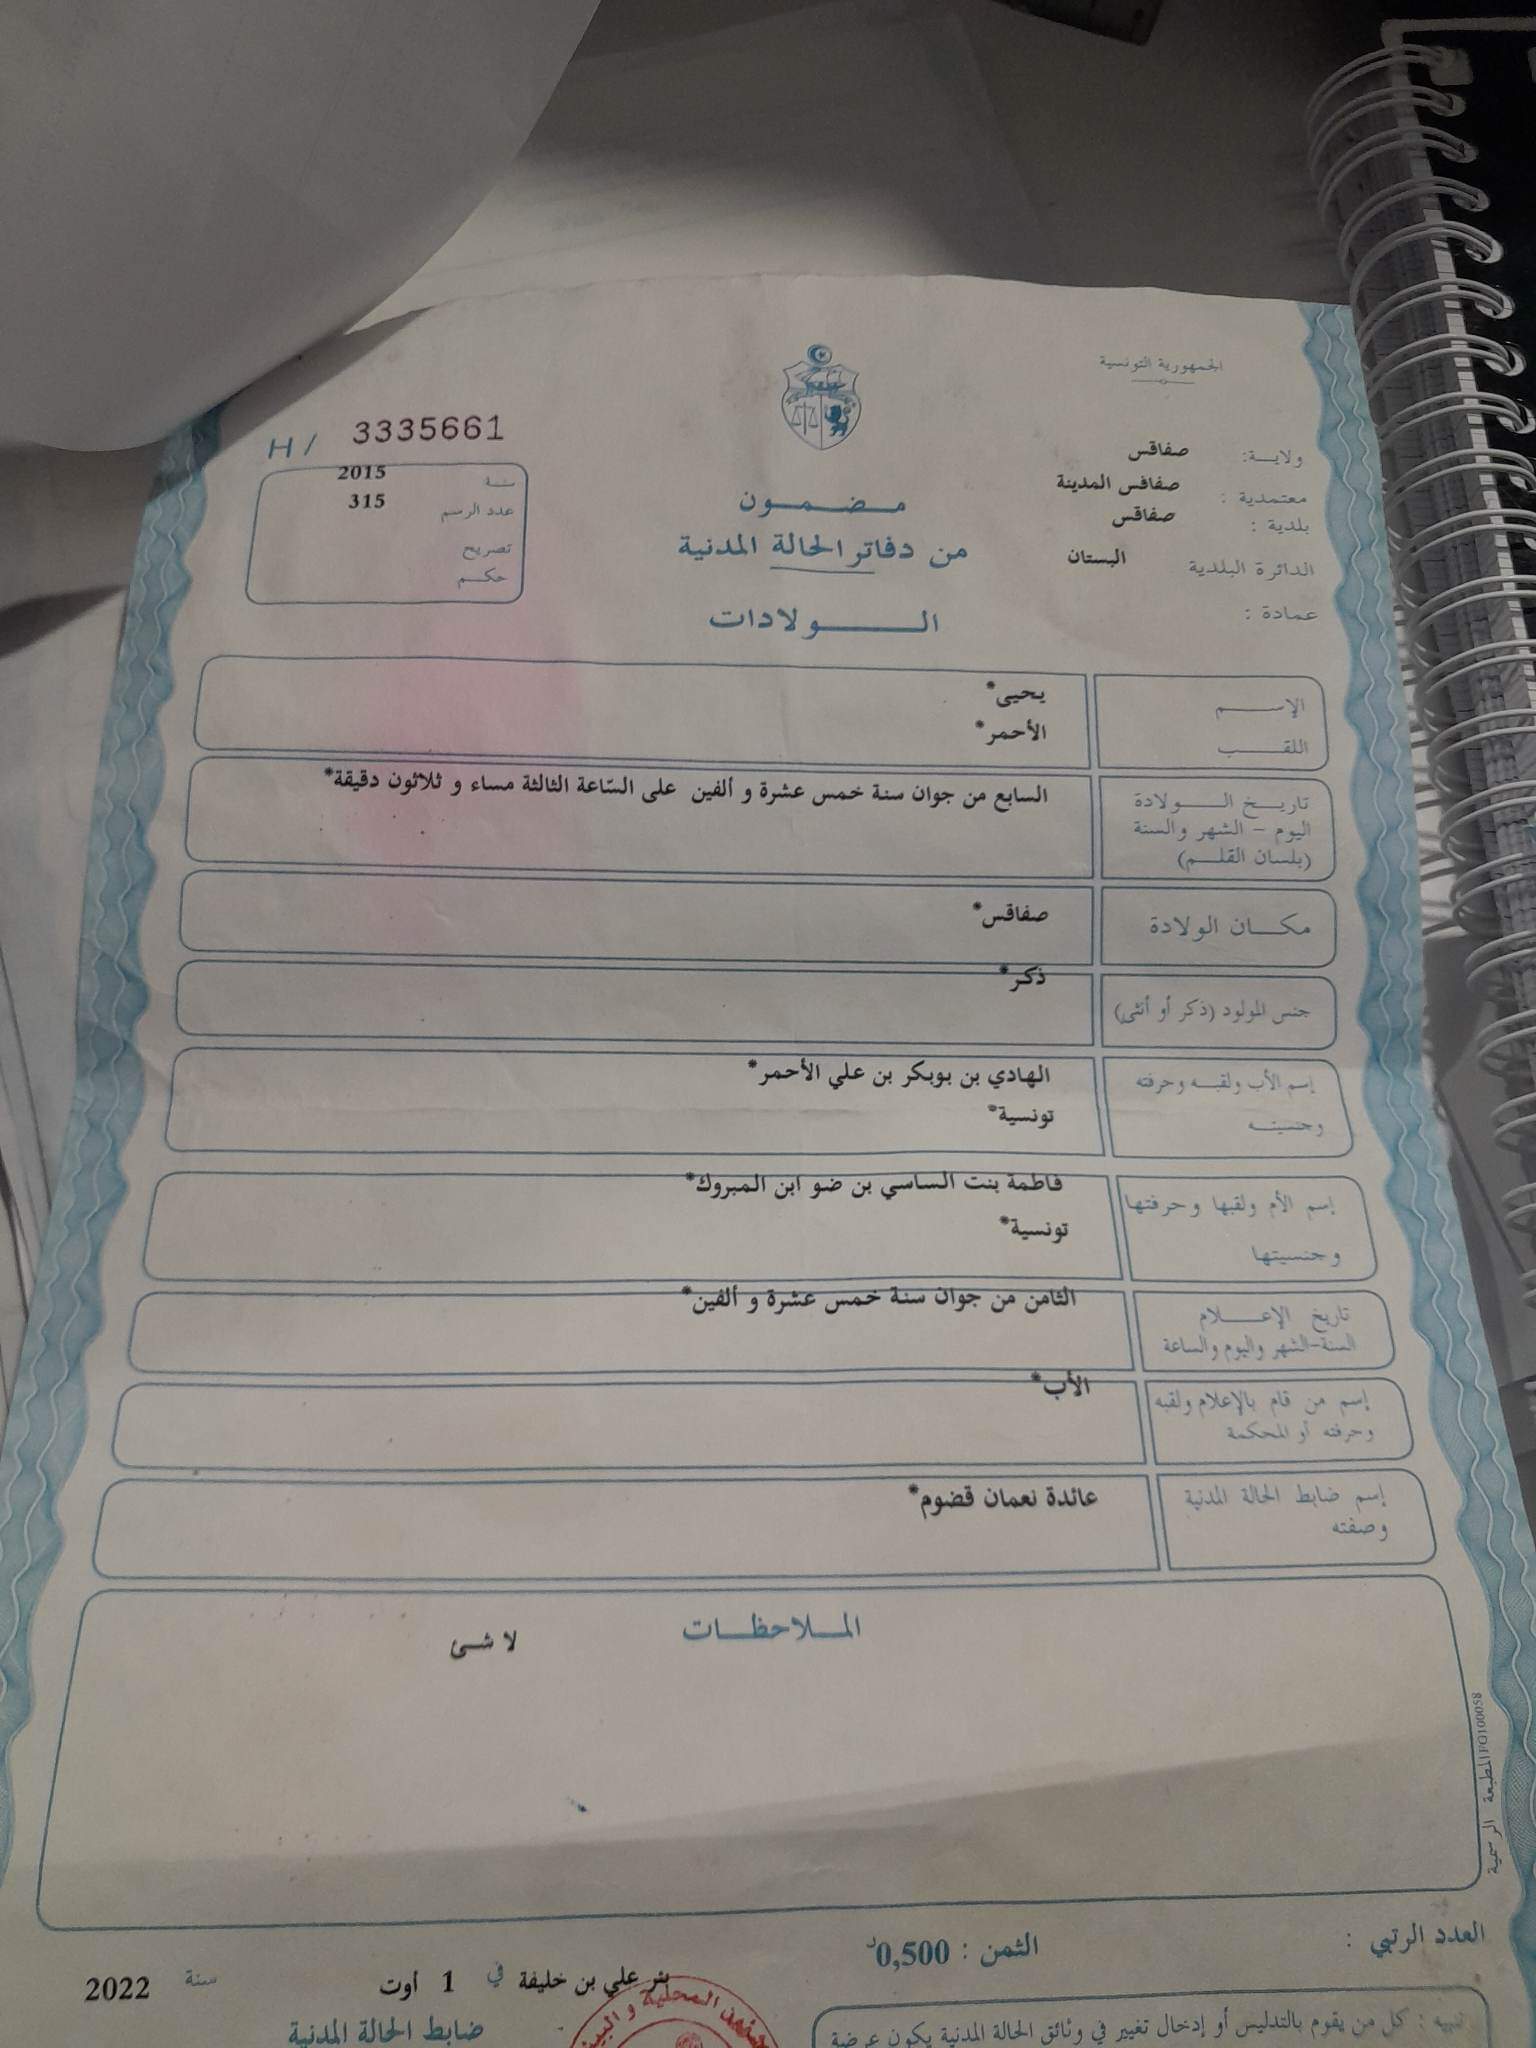 الجمهورية التونسية
ولايـــة: صفاقس
معتمدية : صفاقس المدينة
بلدية : صفاقس
الدائرة البلدية البستان
عمادة :
H / 3335661
سنـة 2015
عدد الرسم 315
تصريح
حكــم
مـــضـــمـــون
من دفاتر الحالة المدنية
الـــــــولادات
الإســـــم يحيى*
اللقـــــب الأحمر*
تاريـــخ الـــــولادة السابع من جوان سنة خمس عشرة و ألفين على السّاعة الثالثة مساء و ثلاثون دقيقة*
اليوم – الشهر والسنة
(بلسان القلــم)
مكــــان الولادة صفاقس*
جنس المولود (ذكر أو أنثى) ذكر*
إسم الأب ولقبــه وحرفته الهادي بن بوبكر بن علي الأحمر*
وجنسيتــه تونسية*
إسم الأم ولقبها وحرفتها فاطمة بنت الساسي بن ضو ابن المبروك*
وجنسيتها تونسية*
تاريخ الإعــــلام الثامن من جوان سنة خمس عشرة و ألفين*
السنة-الشهر واليوم والساعة
إسم من قام بالإعلام ولقبه الأب*
وحرفته أو المحكمة
إسم ضابط الحالة المدنية عائدة نعمان قضوم*
وصفته
المـــلاحظـــات
لا شئ
المطبعة الرسمية FO100058
العدد الرتبي :
الثمن : 0,500د
بئر علي بن خليفة في 1 أوت سنة 2022
ضابط الحالة المدنية
تنبيه : كل من يقوم بالتدليس أو إدخال تغيير في وثائق الحالة المدنية يكون عرضة